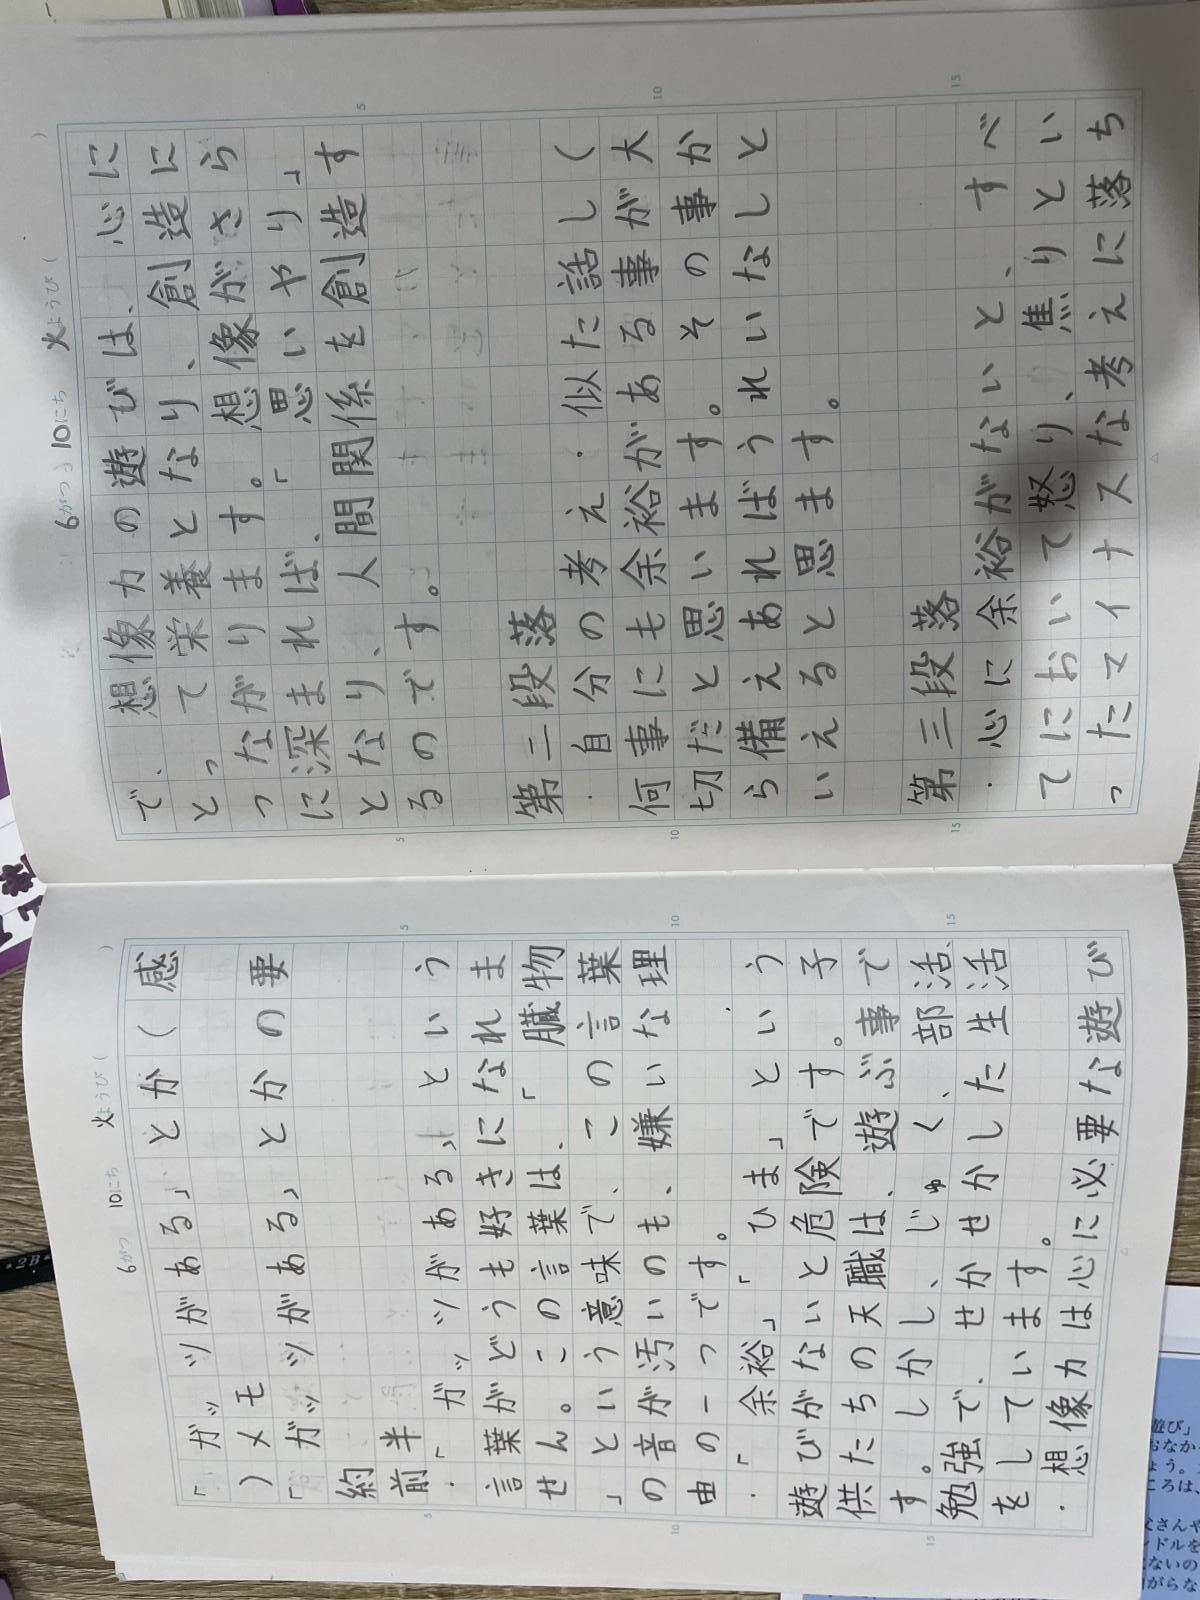 6がつ 10にち 火ようび( )
「ガッツがある」とか(感
)メモ
「ガッツがある」とかの要
約
前半
・「ガッツがある」という
言葉がどうも好きになれま
せん。この言葉は、「臓物
」という意味で、この言葉
の音が汚いのも、嫌いな理
由の一つです。
・「余裕」「ひま」という
遊びがないと危険です。子
供たちの天職は、遊ぶ事で
す。しかし、じゅく、部活、
勉強で、せかせかした生活
をしています。
・想像力は心に必要な遊び
5
10
15
6がつ 10にち 火ようび( )
で、想像力の遊びは、心に
とって栄養となり、創造に
つながります。想像がさら
に深まれば、「思いやり」
となり、人間関係を創造す
るのです。
第二段落
・自分の考え・似た話し(
何事にも余裕がある事が大
切だと思います。その事か
ら備えあればうれいなしと
いえると思います。
第三段落
・心に余裕がないと、すべ
てにおいて怒り、焦りとい
ったマイナスな考えに落ち
5
10
15
2B